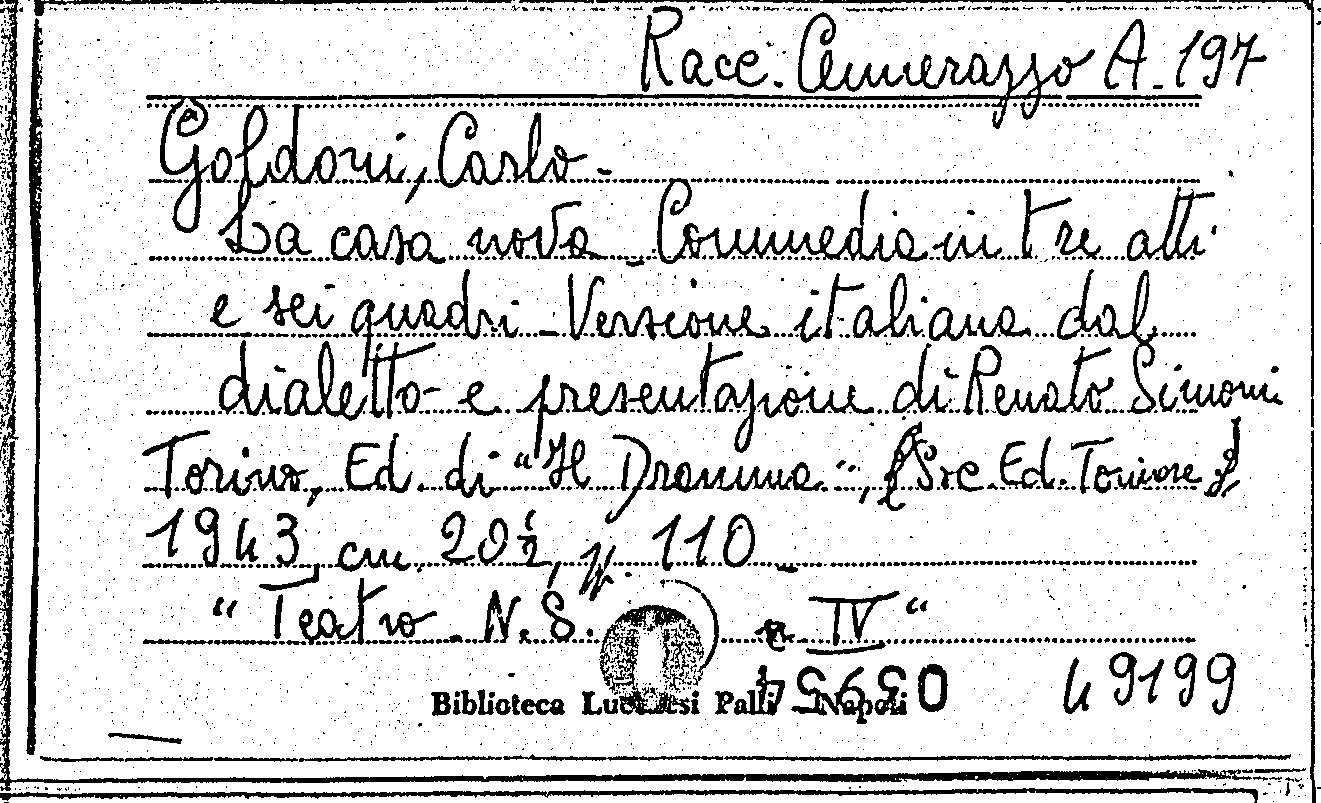 Racc. Cennerazzo A. 197
Goldoni, Carlo -
La casa nova - Commedia in tre atti
e sei quadri - Versione italiana dal
dialetto e presentazione di Renato Simoni
Torino, Ed. di "Il Dramma", [Soc. Ed. Torinese],
1943, cm. 20½, p. 110 -
"Teatro. N. S. IV"
49199
Biblioteca Lucchesi Palli - Napoli